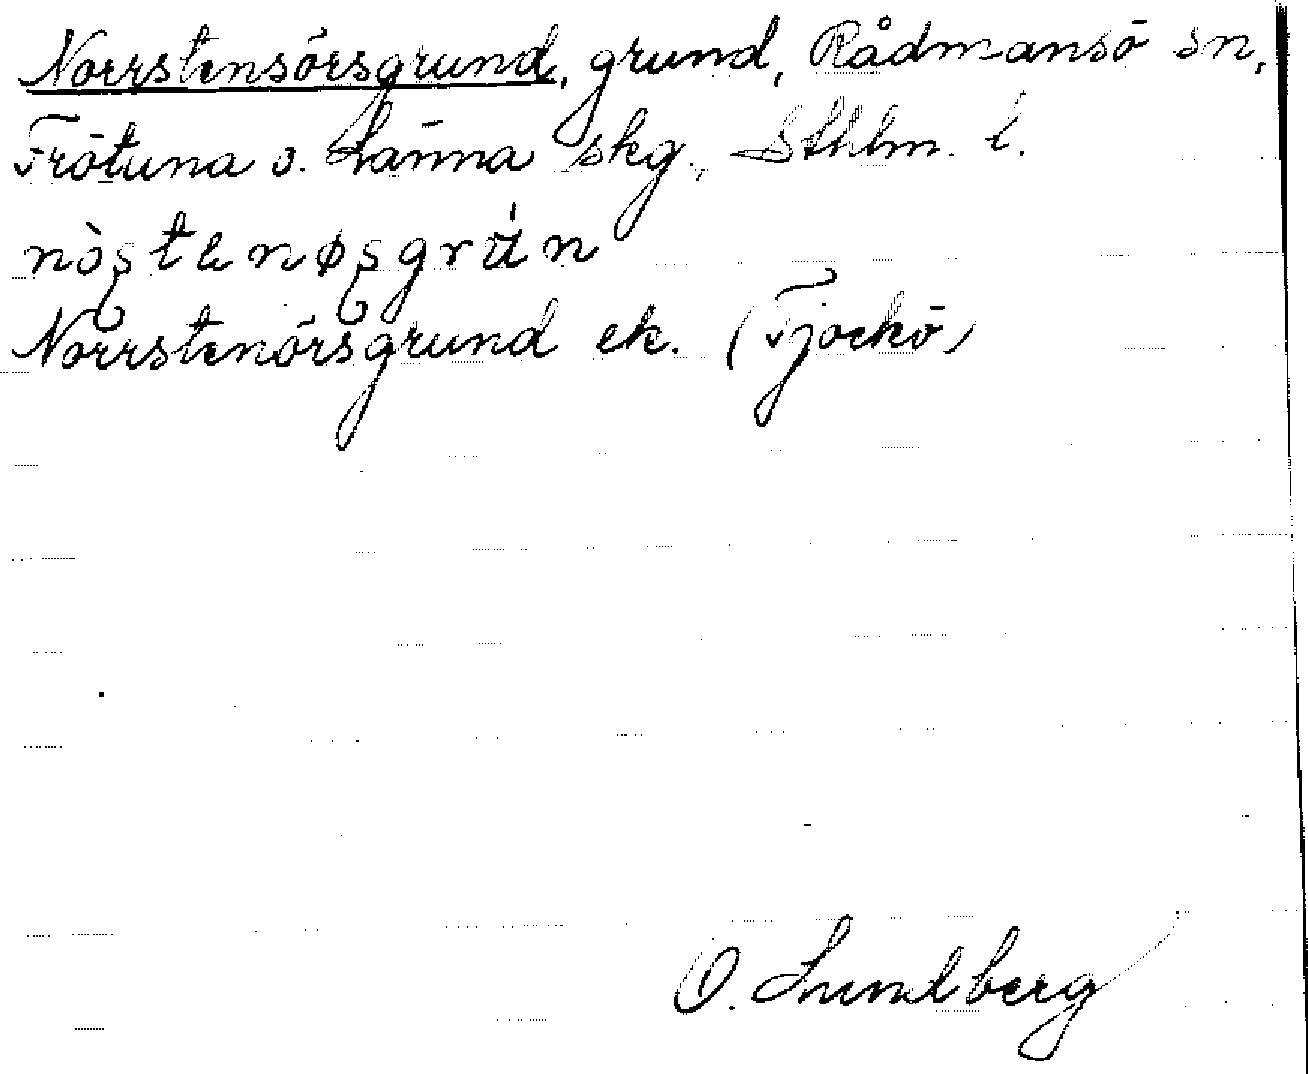 Norrstensörsgrund, grund, Rådmansö sn,
Frötuna o. Länna skg., Sthlm. l.
nò̤ştenøşgrún
Norrstenörsgrund ek. (Tjockö)
O. Lundberg